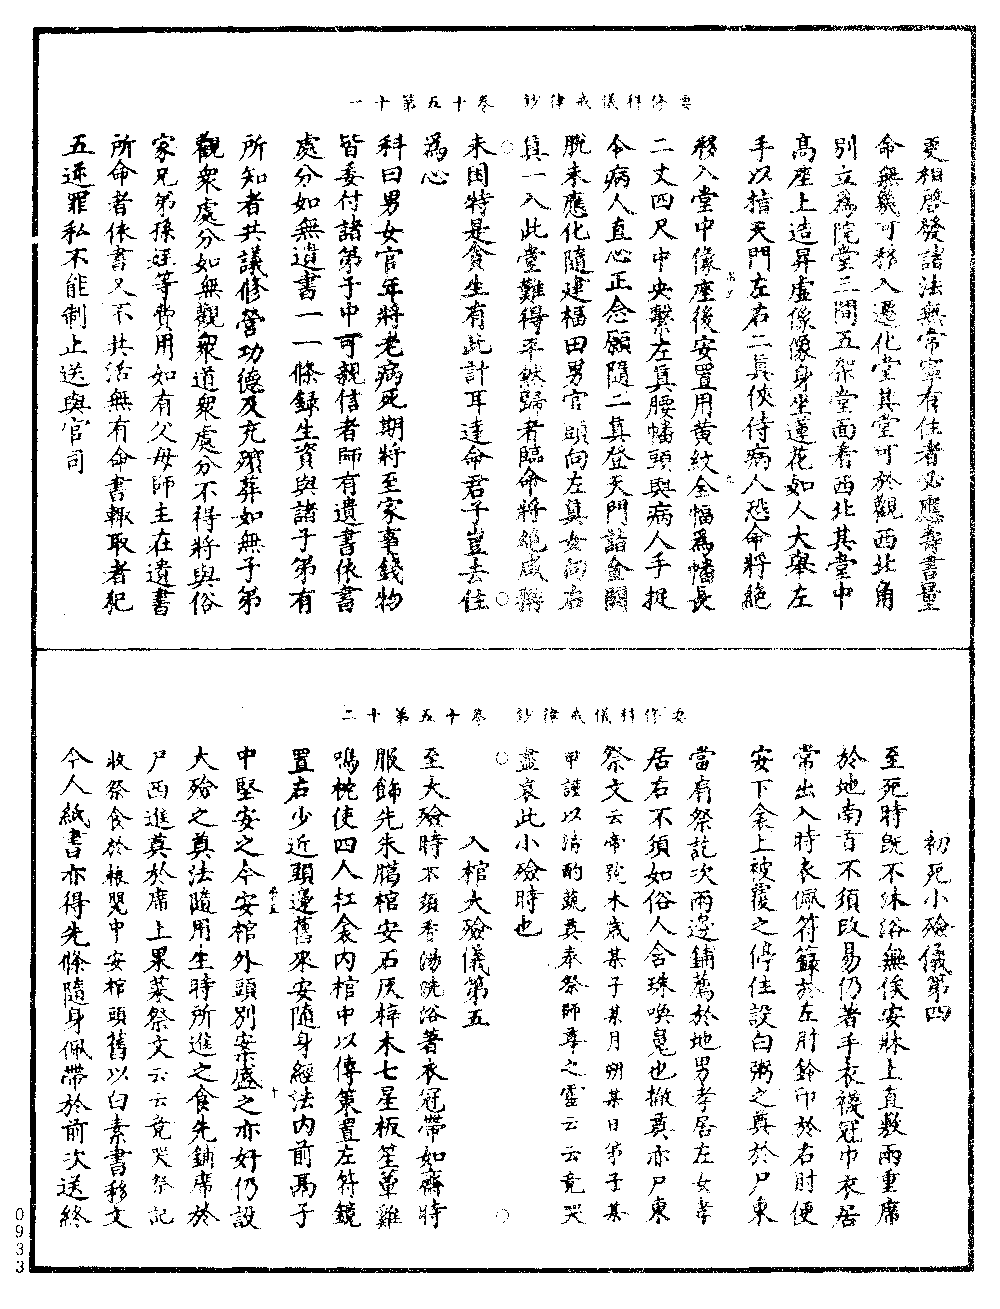 要修科儀戒律鈔　卷十五第十一
更相啓發諸法無常寧有住者必應壽書量
命無幾可移入遷化堂其堂可於觀西北角
別立爲院堂三間五架堂面看西北其堂中
高座上造昇虛像像身坐蓮花如人大舉左
手以指天門左右二眞俠侍病人恐命將絕
移入堂中像座後安置用黃紋全幅爲幡長
二丈四尺中央繫左眞腰幡頭與病人手捉
令病人直心正念願隨二眞登天門詣金闕
脫來應化隨建福田男官頭向左眞女向右
眞一入此堂難得平然歸者臨命將絕咸辭
未困特是貪生有此計耳達命君子豈去住
爲心
科曰男女官年將老病死期將至家事錢物
皆委付諸弟子中可親信者師有遺書依書
處分如無遺書一一條錄生資與諸子弟有
所知者共議修營功德及充殯葬如無子弟
觀衆處分如無觀衆道衆處分不得將與俗
家兄弟孫姪等費用如有父母師主在遺書
所命者依書又不共活無有命書輙取者犯
五逆罪私不能制止送與官司
要修科儀戒律鈔　卷十五第十二
初死小殮儀第四
至死時旣不沐浴無俟安牀上直敷兩重席
於地南首不須改易仍著手衣襪冠巾衣居
常出入時衣佩符籙於左肘鈴印於右肘便
安下衾上被覆之停住設白粥之奠於尸東
當有祭訖次兩邊鋪薦於地男孝居左女孝
居右不須如俗人含珠喚䰟也撤奠亦尸東
祭文云帝號木歲某子某月朔某日弟子某
甲謹以清酌蔬奠奉祭師尊之靈云云竟哭
盡哀此小殮時也
入棺大殮儀第五
至大殮時不須香湯洗浴著衣冠帶如齋時
服飾先朱臈棺安石灰梓木七星板笙簟雞
鳴枕使四人扛衾內棺中以傳策置左符鏡
置右少近頭邊舊來安隨身經法內前禹子
中堅安之今安棺外頭別案盛之亦好仍設
大殮之奠法隨用生時所進之食先鋪席於
尸西進奠於席上果菜祭文云云竟哭祭記
收祭食於棖甖中安棺頭舊以白素書移文
今人紙書亦得先條隨身佩帶於前次送終
0933